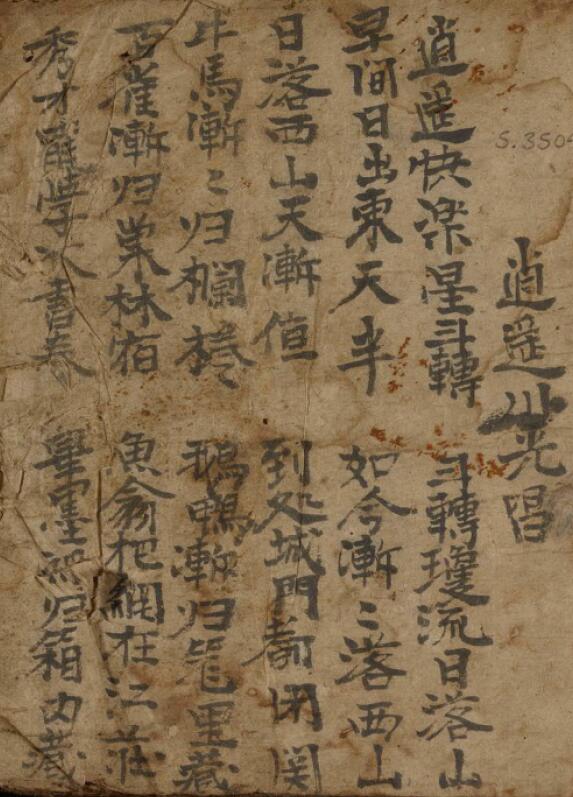 S.3504
逍遥川光唱
逍遥快楽星斗轉 斗轉瓊流日落山
早間日出東天半 如今漸〻落西山
日落西山天漸值 到処城門都闭関
牛馬漸〻归欄 鵝鴨漸归笼里藏
百雀漸归巣林宿 魚翁把網在江莊
秀才 書卷 筆墨 归箱内藏